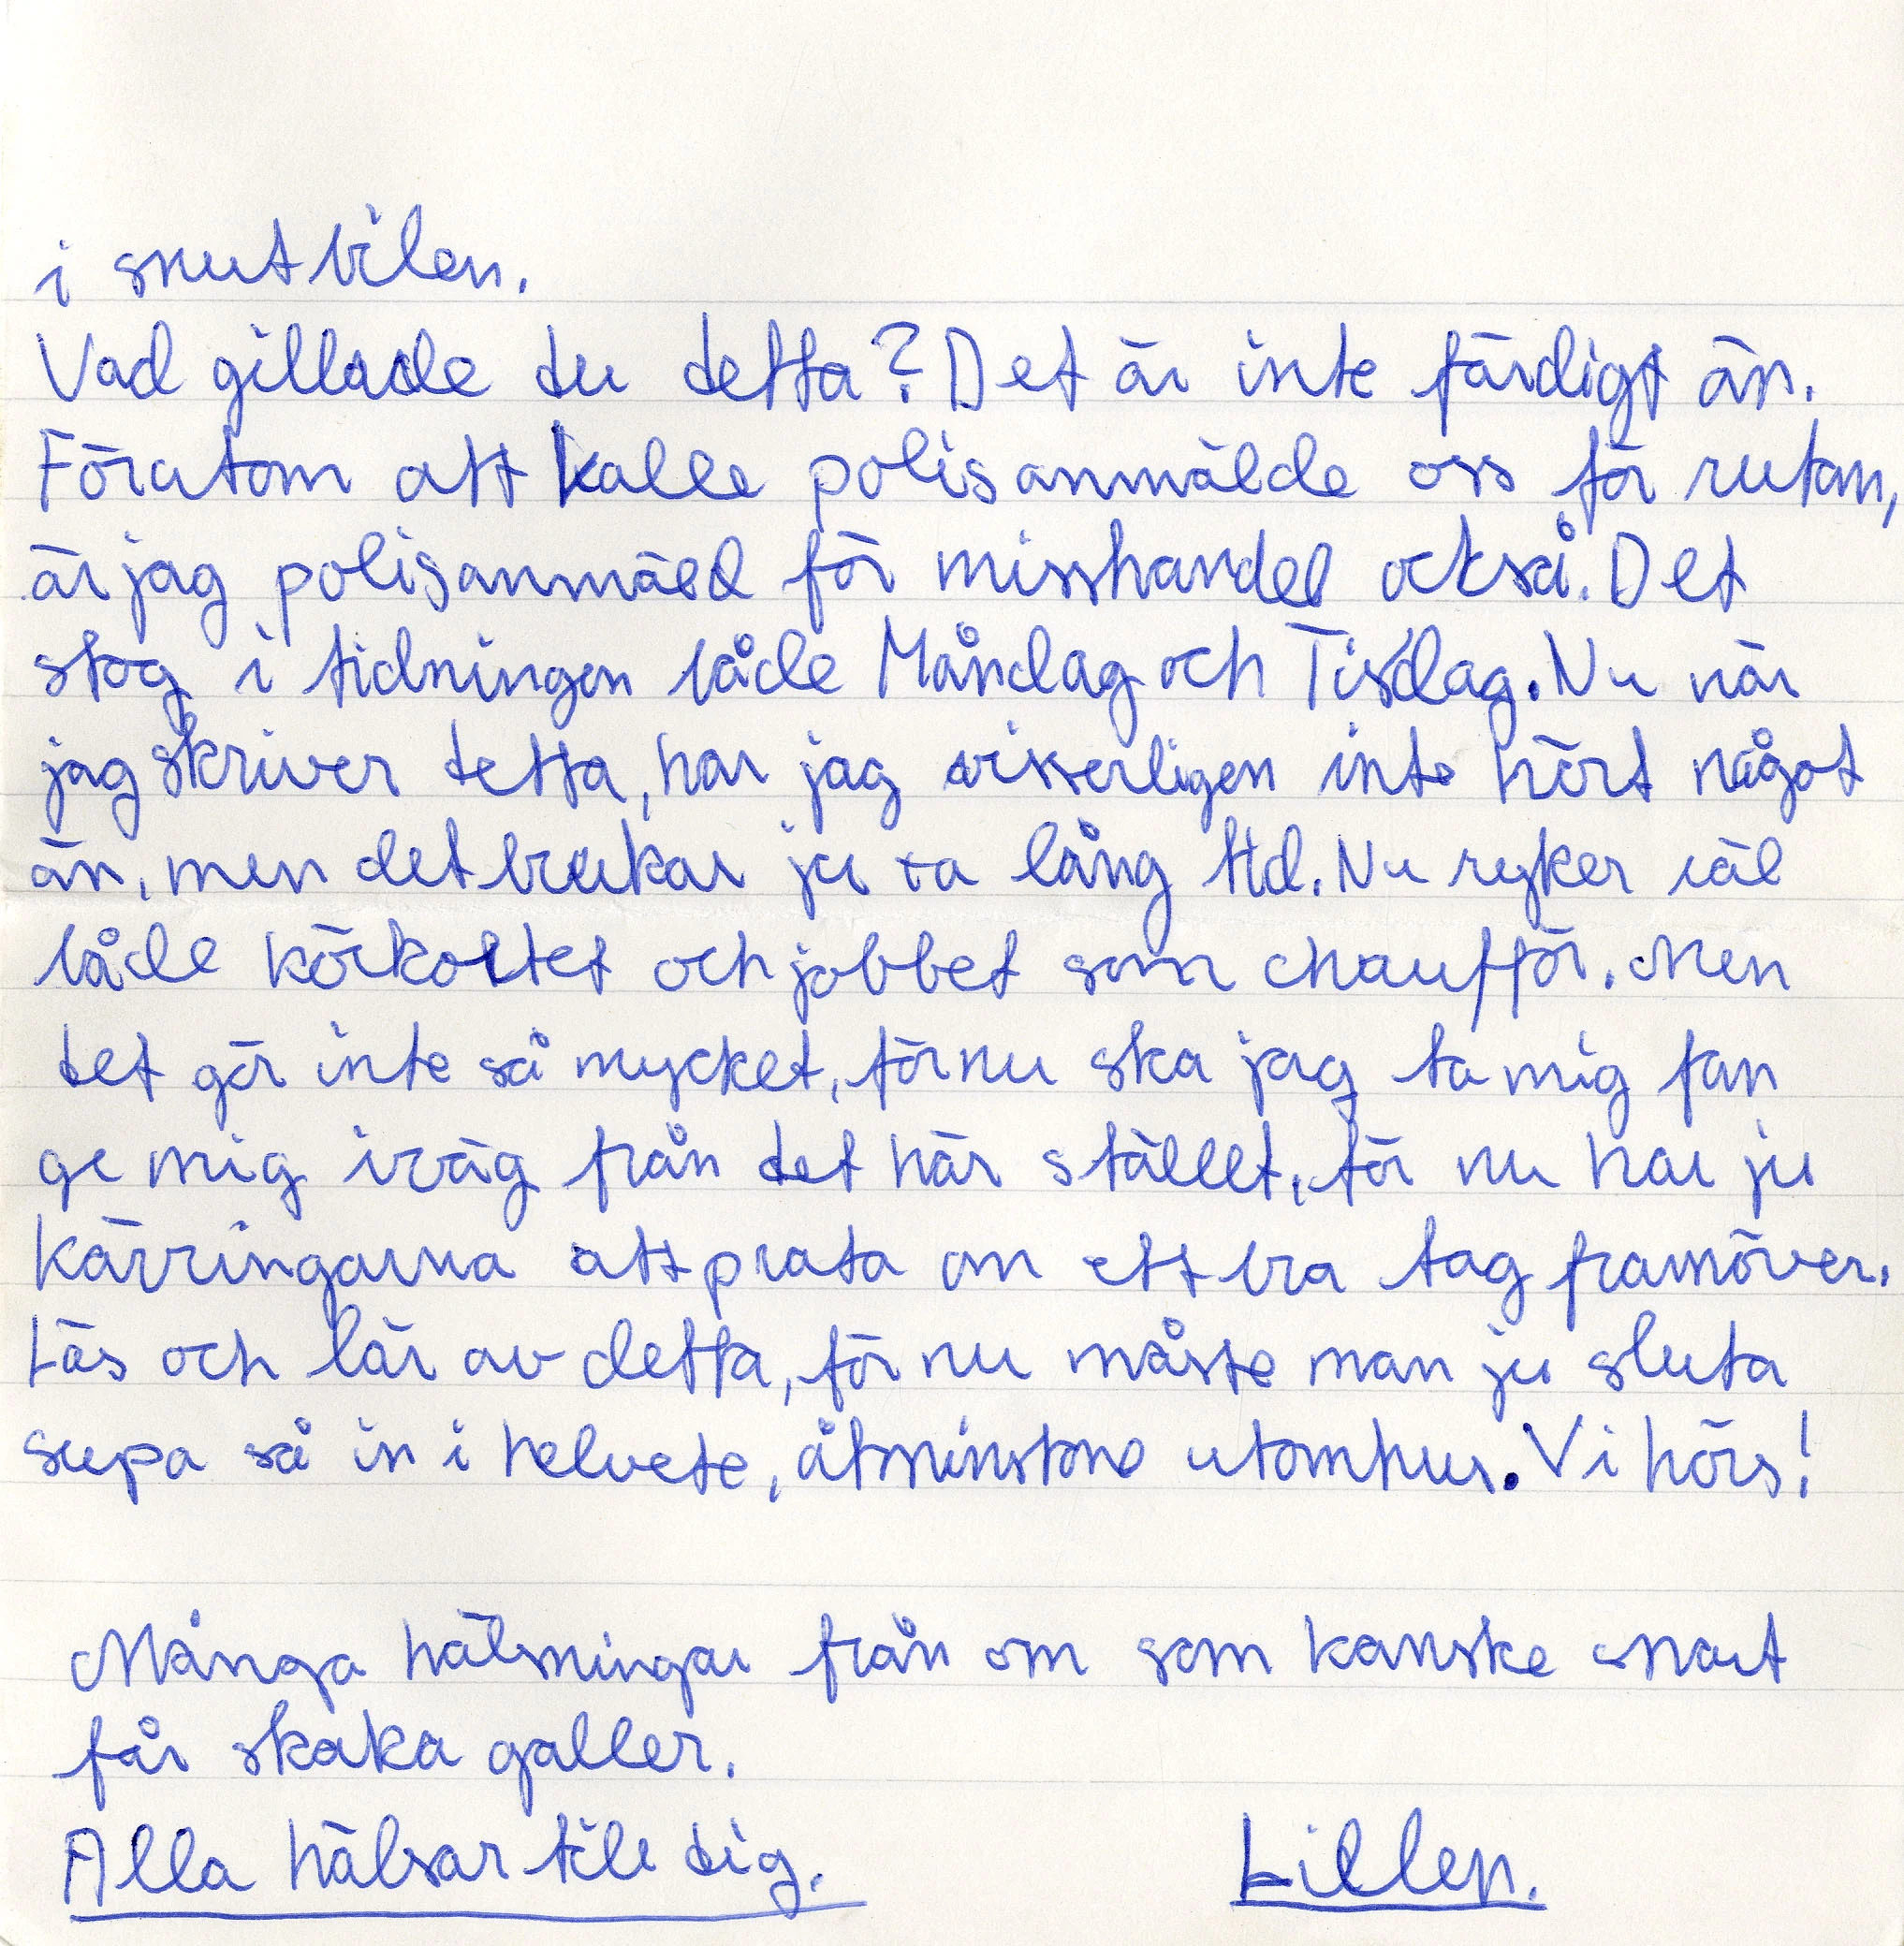 i snutbilen.
Vad gillade du detta? Det är inte färdigt än.
Förutom att Kalle polisanmälde oss för rutan,
är jag polisanmäld för misshandel också. Det
stog i tidningen både Måndag och Tisdag. Nu när
jag skriver detta, har jag visserligen inte hört något
än, men det brukar ju ta lång tid. Nu ryker väl
både körkortet och jobbet som chaufför. Men
det gör inte så mycket, för nu ska jag ta mig fan
ge mig iväg från det här ställt, för nu har ju
kärringarna att prata om ett bra tag framöver.
Läs och lär av detta, för nu måste man ju sluta
supa så in i helvete, åtminstone utomhus. Vi hörs!
Många hälsningar från om som kanske snart
får skaka galler.
Alla hälsar till dig. Lillen.